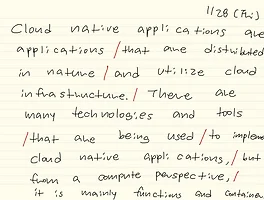 1128 (Fri)
Cloud native applications are
applications / that are distributed
in nature / and utilize cloud
infrastructure. / There are
many technologies and tools
/ that are being used / to implem
cloud native applications, / but
from a compute perspective, /
it is mainly functions and container